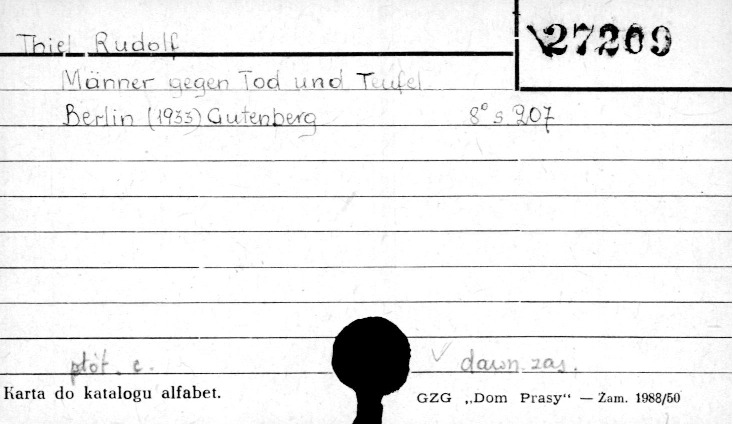 Thiel Rudolf
27209
Männer gegen Tod und Teufel
Berlin (1933) Gutenberg 8° s. 207
płót. c.
✓ dawn. zas.
Karta do katalogu alfabet.
GZG „Dom Prasy“ — Zam. 1988/50